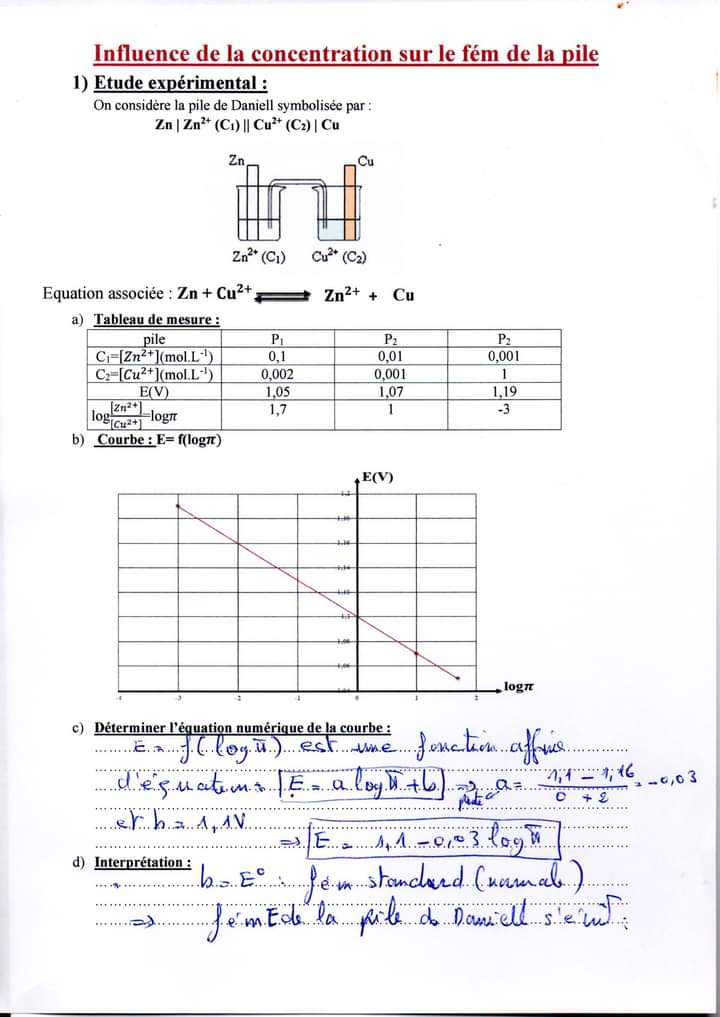 Influence de la concentration sur le fém de la pile
1) Etude expérimental :
On considère la pile de Daniell symbolisée par :
Zn | Zn²⁺ (C₁) || Cu²⁺ (C₂) | Cu
Zn Cu
Zn²⁺ (C₁) Cu²⁺ (C₂)
Equation associée : Zn + Cu²⁺ ⇌ Zn²⁺ + Cu
a) Tableau de mesure :
pile P₁ P₂ P₂
C₁=[Zn²⁺](mol.L⁻¹) 0,1 0,01 0,001
C₂=[Cu²⁺](mol.L⁻¹) 0,002 0,001 1
E(V) 1,05 1,07 1,19
log[Zn²⁺]/[Cu²⁺]=logπ 1,7 1 -3
b) Courbe : E= f(logπ)
E(V)
1,2
1,18
1,16
1,14
1,12
1,1
1,08
1,06
logπ
-4 -3 -2 -1 0 1 2
c) Déterminer l'équation numérique de la courbe :
E = f(log π) est une fonction affine
d'équation : E = a log π + b ⇒ a = (1,1 - 1,16)/(0 + 2) = -0,03
et b = 1,1V
⇒ E = 1,1 - 0,03 log π
d) Interprétation :
b = E° : fém standard (normale)
⇒ fém E de la pile de Daniell s'écrit :